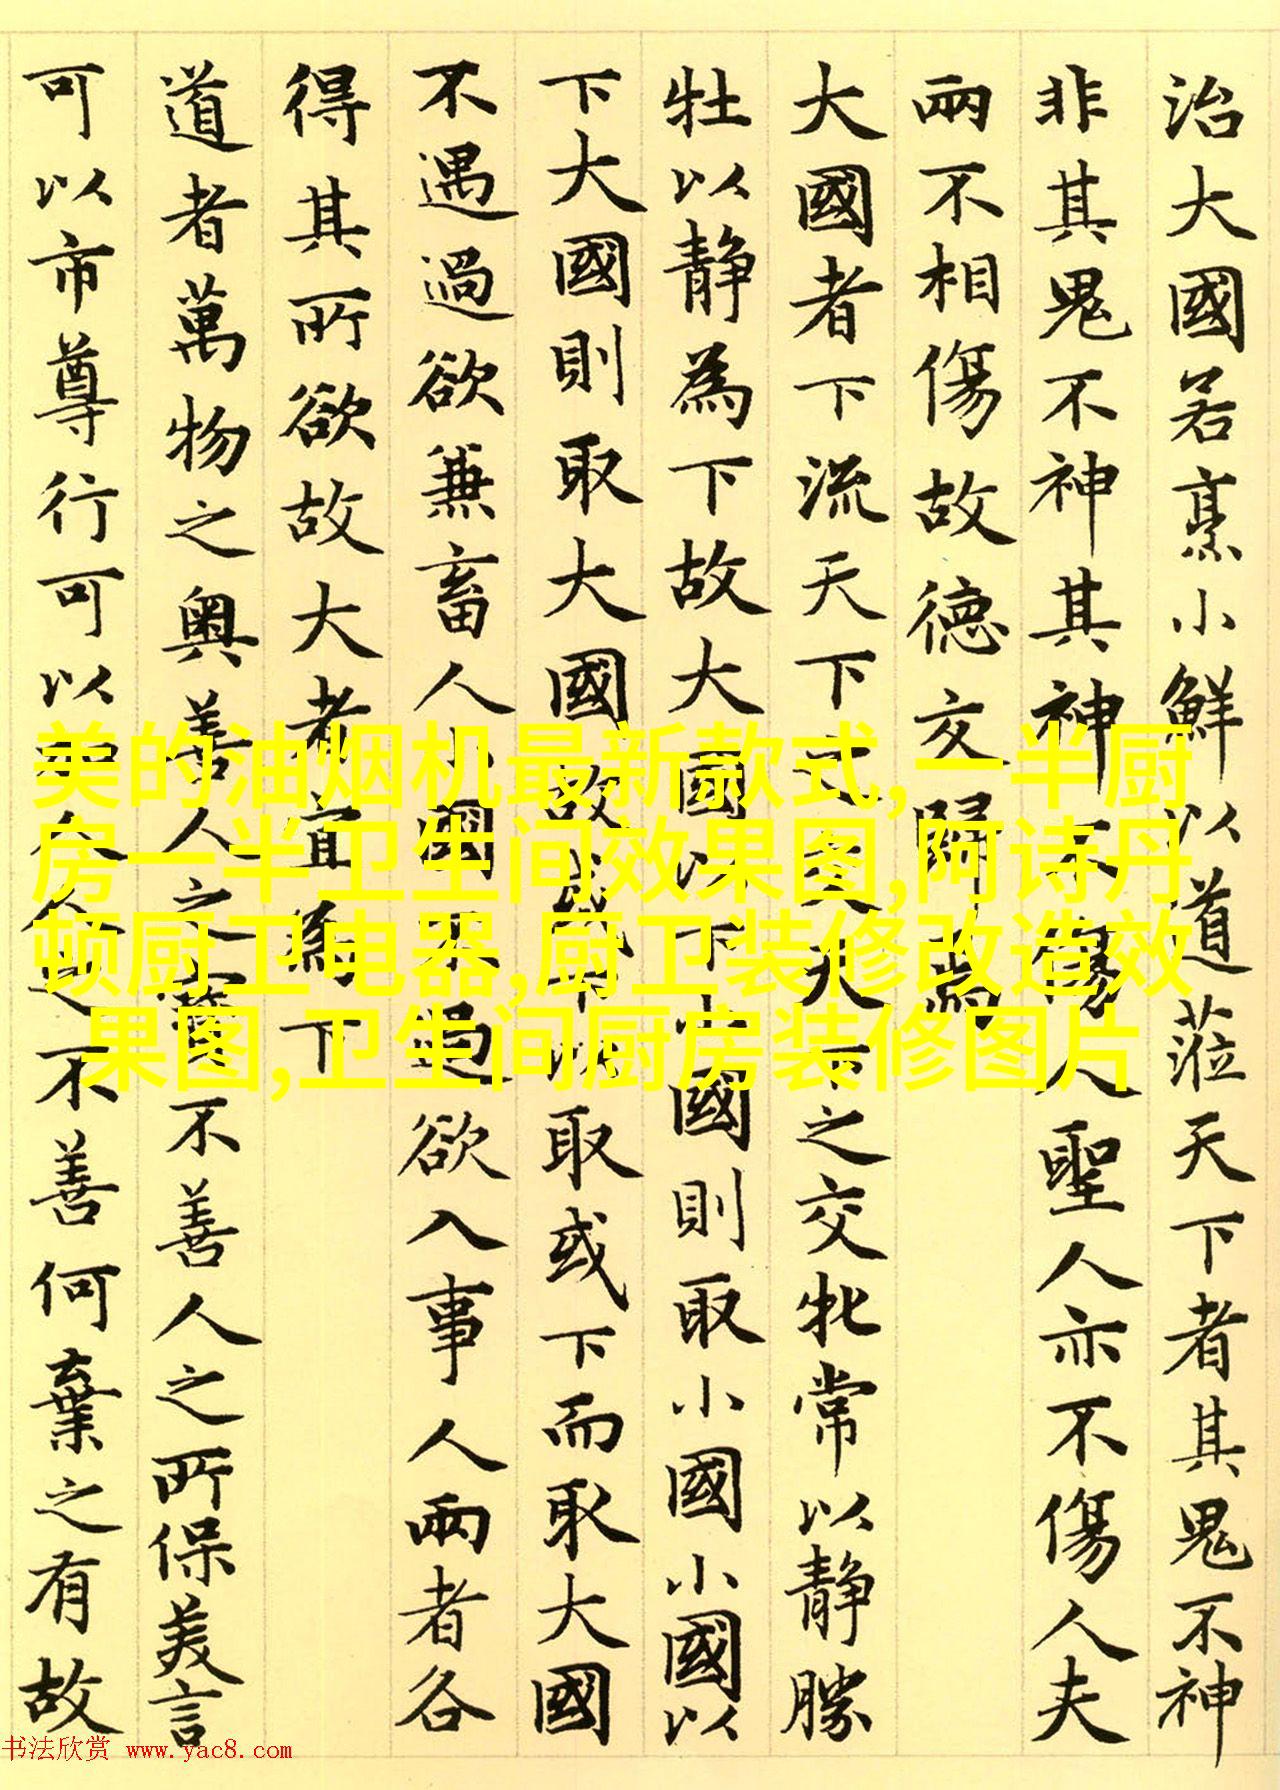 治大國若烹小鮮以道蒞天下者其鬼不神
非其鬼不神其神不傷人聖人亦不傷人夫
兩不相傷故德交歸焉
大國者下流天下之交天下之交牝常以静勝
牡以静為下故大國以下小國則取小國小國以
下大國則取大國故或下以取或下而取大國
不遇過欲兼畜人小國不過欲入事人兩者各
得其所欲故大者宜為下
道者萬物之奧善人之寶不善人之所保美言
可以市尊行可以加人人之不善何棄之有故
美的油烟机最新款式,一半厨
房一半卫生间效果图,阿诗丹
顿厨卫电器,厨卫装修改造效
果图,卫生间厨房装修图片
书法欣赏 www.yac8.com